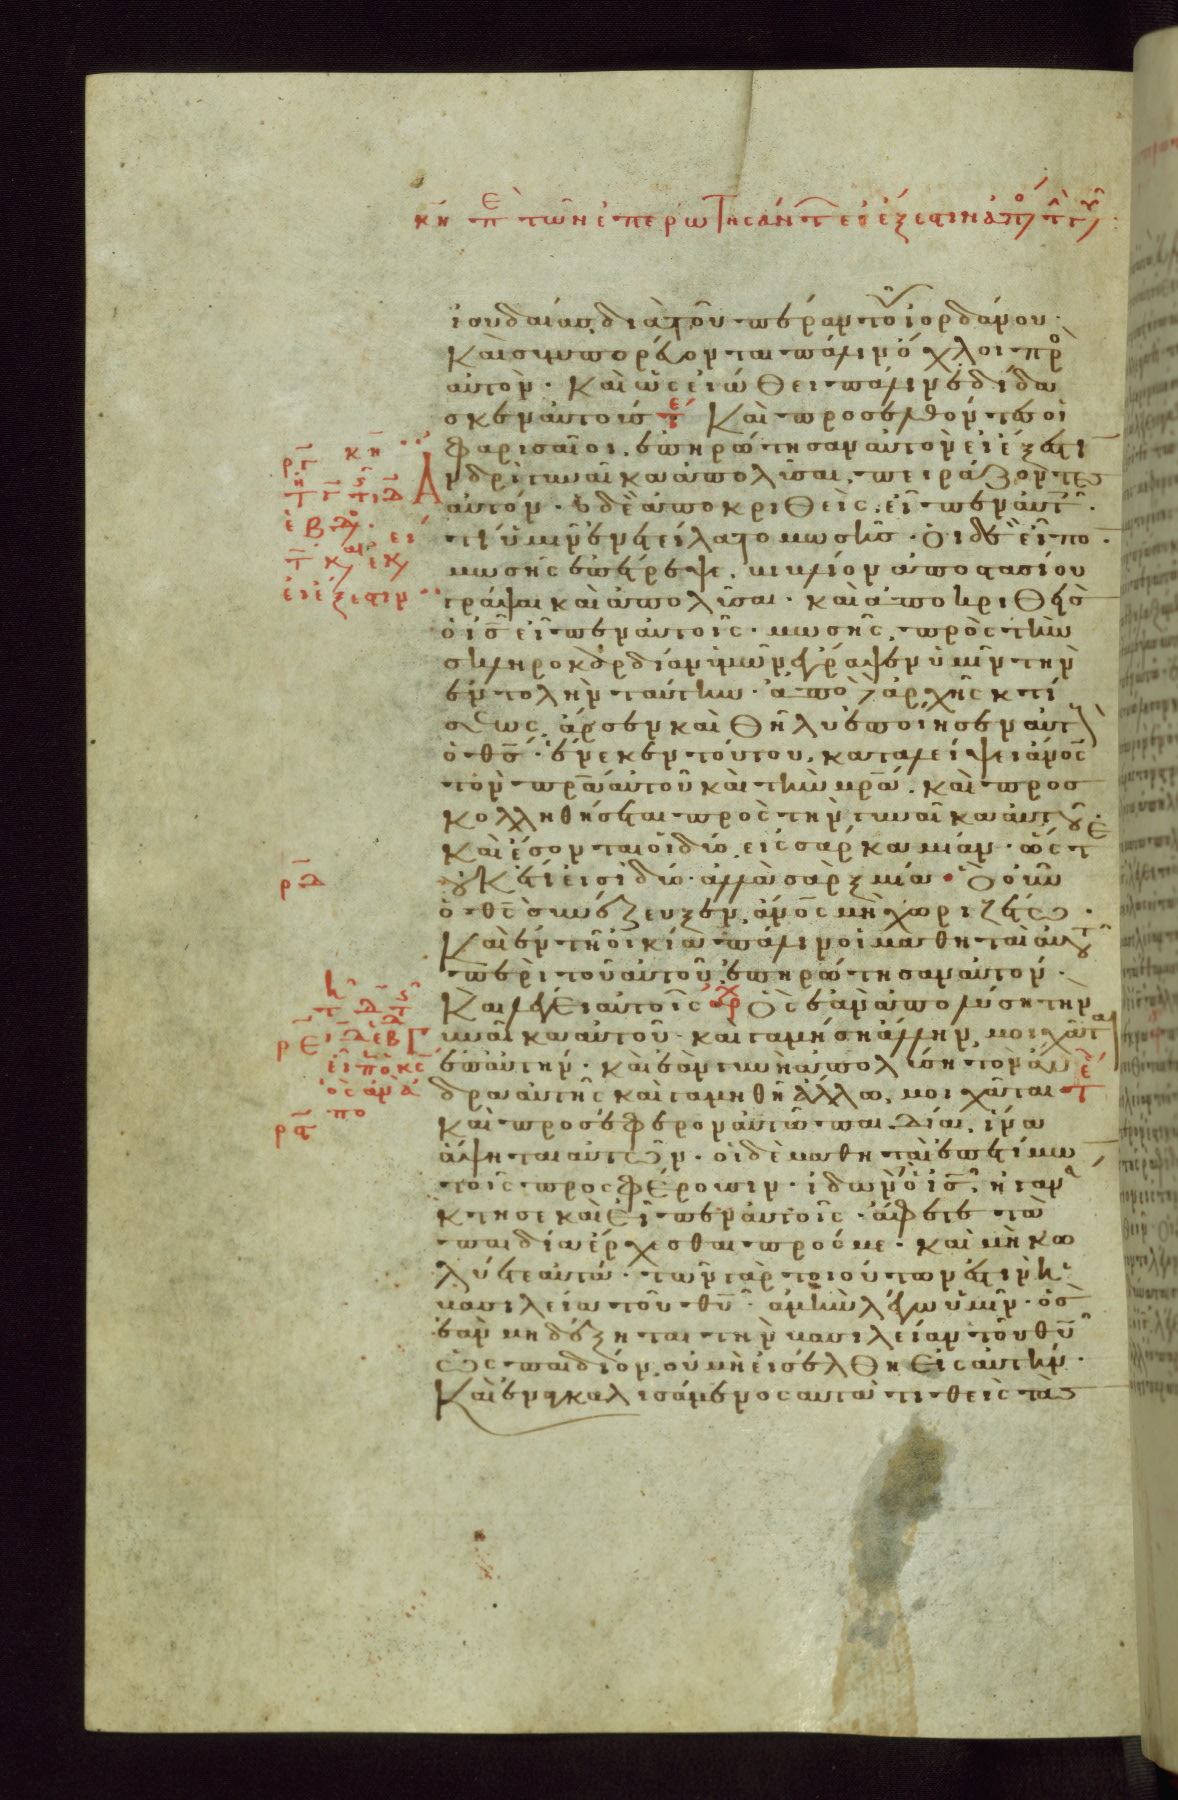 κη πε τῶν ἐπερωτησάντ εἰ ἔξεστιν ἀπο τ γυ
ἰουδαίας διὰ τοῦ πέραν τοῦ ἰορδάνου·
Καὶ συμπορεύονται πάλιν ὄχλοι πρὸ
αὐτὸν· Καὶ ὡς εἰώθει πάλιν ἐδίδα
σκεν αὐτούς τε Καὶ προσελθόντες οἱ
φαρισαῖοι, ἐπηρώτησαν αὐτὸν εἰ ἔξεστιν
ἀνδρὶ γυναῖκα ἀπολῦσαι, πειράζοντες
αὐτόν· ὁ δὲ ἀποκριθεὶς, εἶπεν αὐτοῖς·
τί ὑμῖν ἐνετείλατο μωσῆς· Οἱ δὲ εἶπον·
μωσῆς ἐπέτρεψε, βιβλίον ἀποστασίου
γράψαι καὶ ἀπολῦσαι· καὶ ἀποκριθεὶς
ὁ ις εἶπεν αὐτοῖς· μωσῆς, πρὸς τὴν
σκληροκαρδίαν ὑμῶν ἔγραψεν ὑμῖν τὴν
ἐντολὴν ταύτην· ἀπὸ δὲ ἀρχῆς κτί
σεως, ἄρσεν καὶ θῆλυ ἐποίησεν αὐτοὺς
ὁ θς· ἕνεκεν τούτου, καταλείψει ἄνος
τὸν πρα αὐτοῦ καὶ τὴν μρα, καὶ προσ
κολληθήσεται πρὸς τὴν γυναῖκα αὐτοῦ·
Καὶ ἔσονται οἱ δύο εἰς σάρκα μίαν· ὥστε
οὐκέτι εἰσὶ δύο· ἀλλὰ σὰρξ μία· Ὃ οὖν
ὁ θς συνέζευξεν, ἄνος μὴ χωριζέτω·
Καὶ ἐν τῇ οἰκίᾳ πάλιν οἱ μαθηταὶ αὐτοῦ
περὶ τοῦ αὐτοῦ ἐπηρώτησαν αὐτόν·
Καὶ λέγει αὐτοῖς αρχ Ὃς ἐὰν ἀπολύσῃ τὴν
γυναῖκα αὐτοῦ· καὶ γαμήσῃ ἄλλην, μοιχᾶται
ἐπ αὐτήν· καὶ ἐὰν γυνὴ ἀπολύσῃ τὸν ἄν
δρα αὐτῆς καὶ γαμηθῇ ἄλλῳ, μοιχᾶται τε
Καὶ προσέφερον αὐτῷ παιδία, ἵνα
ἅψηται αὐτῶν· οἱ δὲ μαθηταὶ ἐπετίμων
τοῖς προσφέρουσιν· ἰδὼν δὲ ὁ ις, ἠγανά
κτησε καὶ εἶπεν αὐτοῖς· ἄφετε τὰ
παιδία ἔρχεσθαι πρός με· καὶ μὴ κω
λύετε αὐτά· τῶν γὰρ τοιούτων ἐστὶν ἡ
βασιλεία τοῦ θυ· ἀμὴν λέγω ὑμῖν· ὃς
ἐὰν μὴ δέξηται τὴν βασιλείαν τοῦ θυ
ὡς παιδίον, οὐ μὴ εἰσέλθῃ εἰς αὐτήν·
Καὶ ἐναγκαλισάμενος αὐτὰ τιθεὶς τὰς